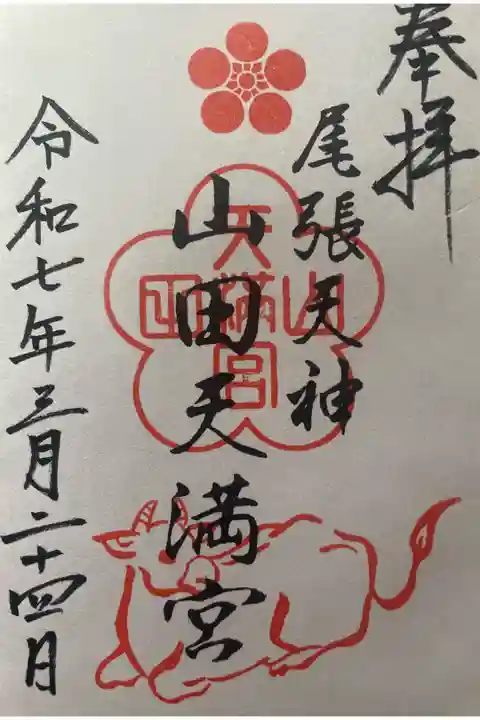 奉拝
尾張天神
山田天満宮
山田天満宮
令和七年三月二十四日